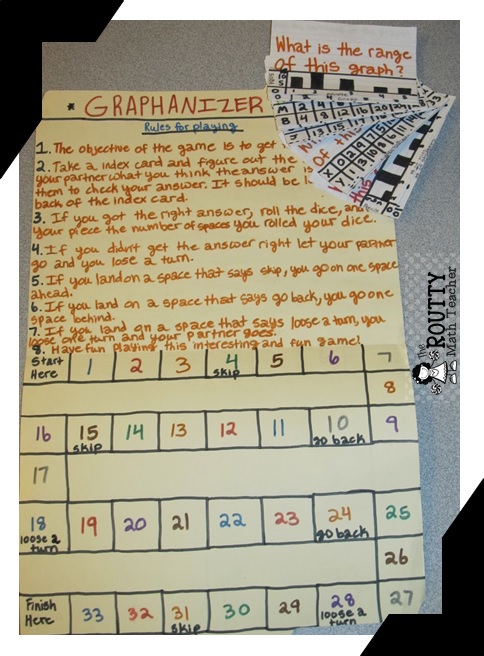 What is the range
of this graph?
* GRAPHANIZER
Rules for playing
1. The objective of the game is to get
2. Take a index card and figure out the
your partner what you think the answer is
them to check your answer. It should be
back of the index card.
3. If you got the right answer, roll the dice, and
your piece the number of spaces you rolled your dice.
4. If you didn't get the answer right let your partner
go and you lose a turn.
5. If you land on a space that says skip, you go on one space
ahead.
6. If you land on a space that says go back, you go one
space behind.
7. If you land on a space that says loose a turn, you
loose one turn and your partner goes.
8. Have fun playing this interesting and fun game!
Start Here 1 2 3 4 skip 5 6 7
8
16 15 skip 14 13 12 11 10 go back 9
17
18 loose a turn 19 20 21 22 23 24 go back 25
26
Finish Here 33 32 31 skip 30 29 28 loose a turn 27
The ROUTTY Math Teacher